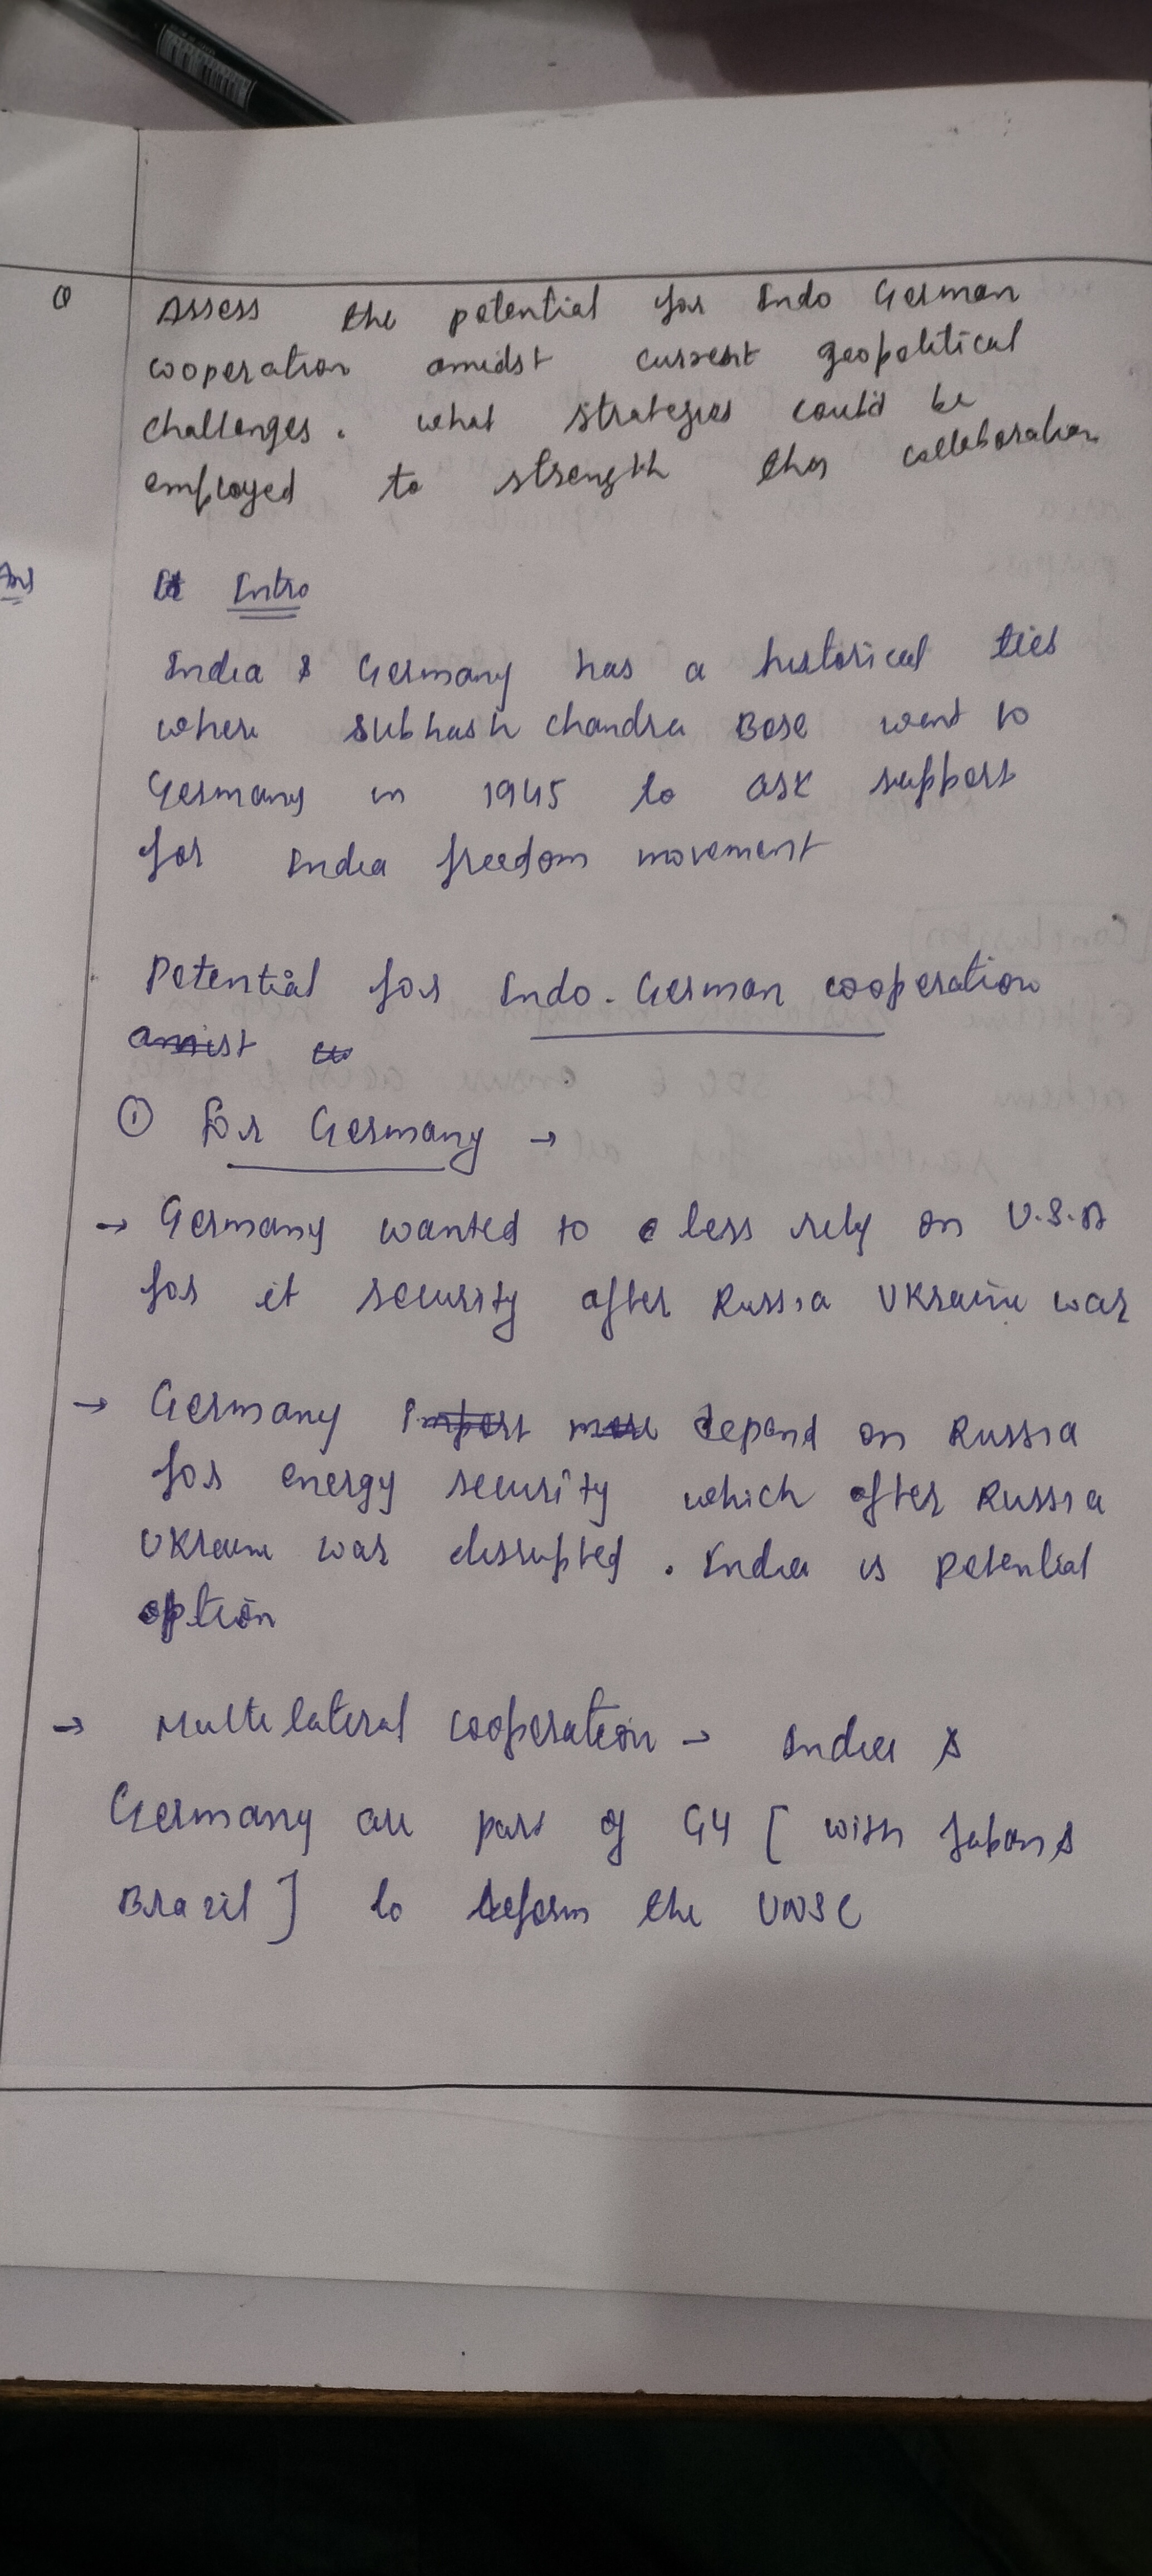 Q Assess the potential for Indo German
cooperation amidst current geopolitical
challenges. what strategies could be
employed to strength this collaboration
Ans Intro
India & Germany has a historical ties
where subhash chandra Bose went to
Germany in 1945 to ask support
for India freedom movement
Potential for Indo-German cooperation
amist
① for Germany →
→ Germany wanted to less rely on U.S.A
for it security after Russia Ukraine war
→ Germany Import more depend on Russia
for energy security which after Russia
Ukraine war disrupted. India is potential
option
→ Multilateral cooperation → India &
Germany are part of G4 [ with Japan &
Brazil ] to reform the UNSC